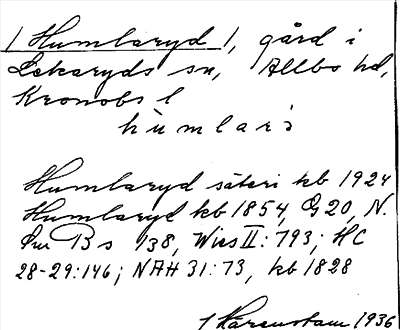 / Humlaryd /, gård i
Lekaryds sn, Allbo hd,
Kronobs l
hùmlarɜ
Humlaryd säteri kb 1924
Humlaryd kb 1854, G 20, N.
B s 138, Wies II: 793; HC
28-29:146; NAH 31:73, kb 1828
1936